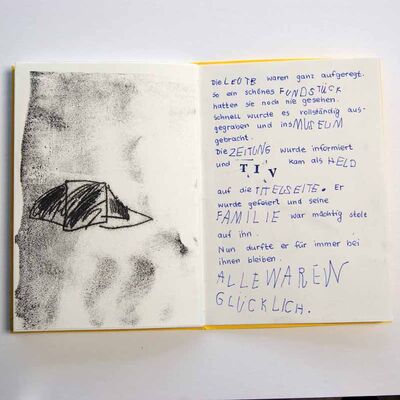 Die LEOTB waren ganz aufgeregt.
So ein schönes FUNDSTÜCK
hatten sie noch nie gesehen.
Schnell wurde es vollständig aus-
gegraben und ins MUSEUM
gebracht.
Die ZEITUNG wurde informiert
und TIV kam als HELD
auf die TITELSEITE. Er
wurde gefeiert und seine
FAMILIE war mächtig stolt
auf ihn.
Nun durfte er für immer bei
ihnen bleiben.
ALLE WAREN
GLÜCKLICH.